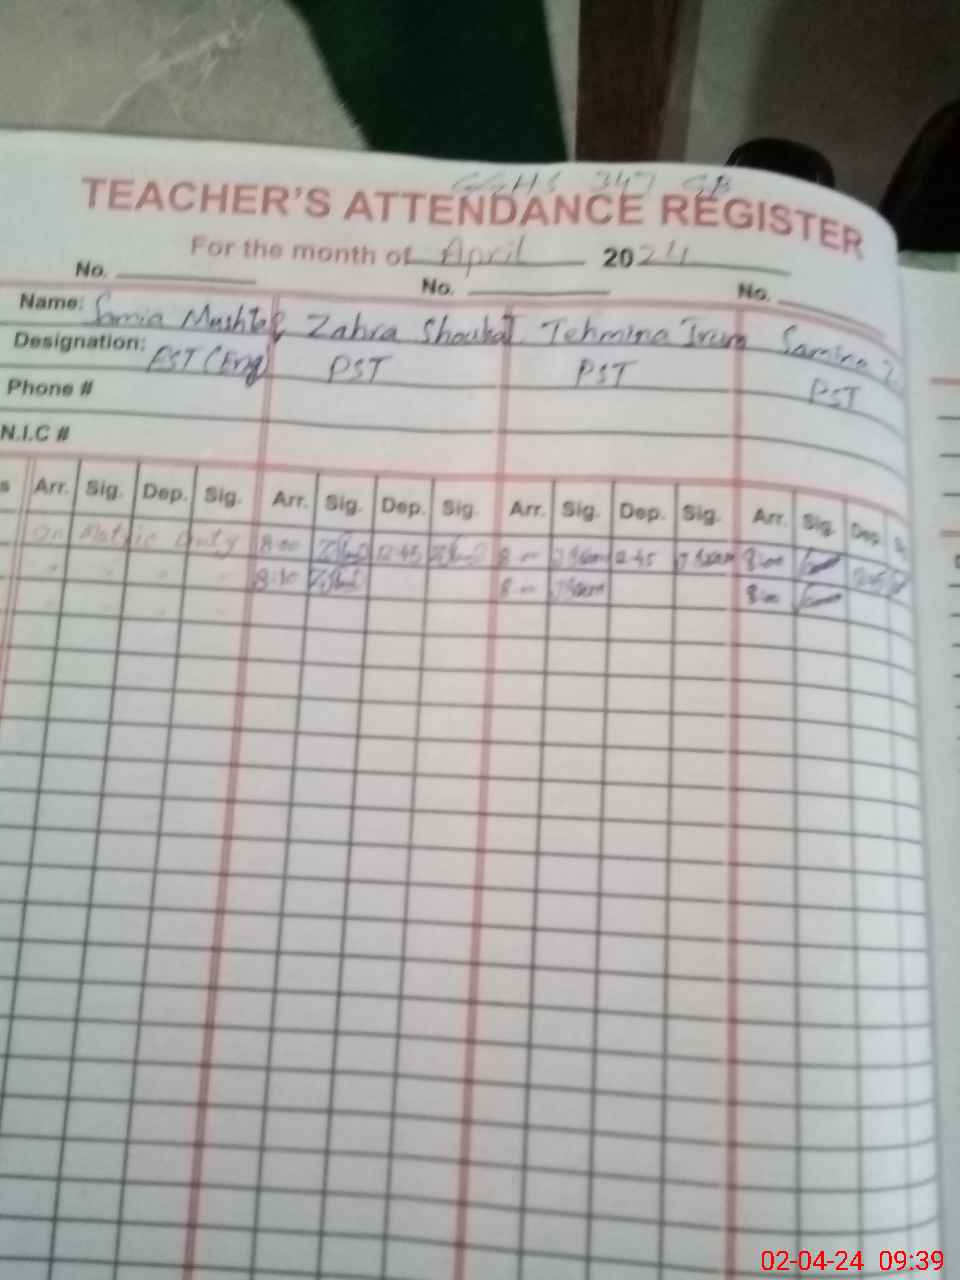 GGHS 347 GB
TEACHER'S ATTENDANCE REGISTER
For the month of April 2024
No. No. No.
Name: Samia Mushtaq Zahra Shoukat Tehmina Irum Samina
Designation: EST (Eng) PST PST PST
Phone #
N.I.C #
s Arr. Sig. Dep. Sig. Arr. Sig. Dep. Sig. Arr. Sig. Dep. Sig. Arr. Sig. Dep.
On Matric Duty 8:00 12:45 8:00 12:45 8:00
8:10 8:00 8:00
02-04-24 09:39